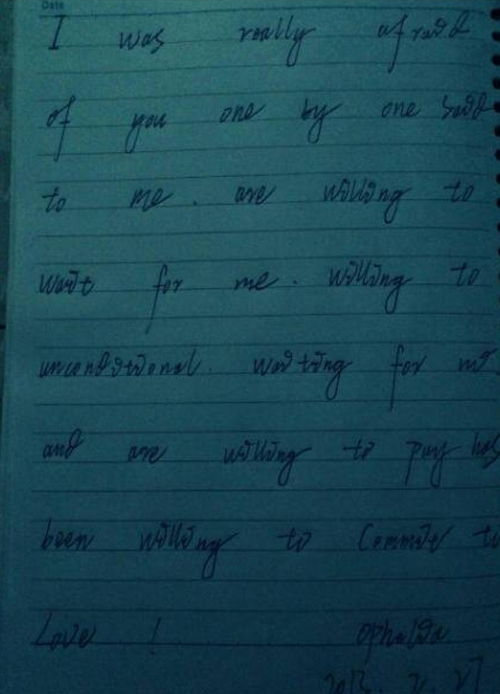 Date
I was really afraid
of you one by one said
to me. are willing to
wait for me. willing to
unconditional. waiting for me
and are willing to pay has
been willing to commit to
Love !